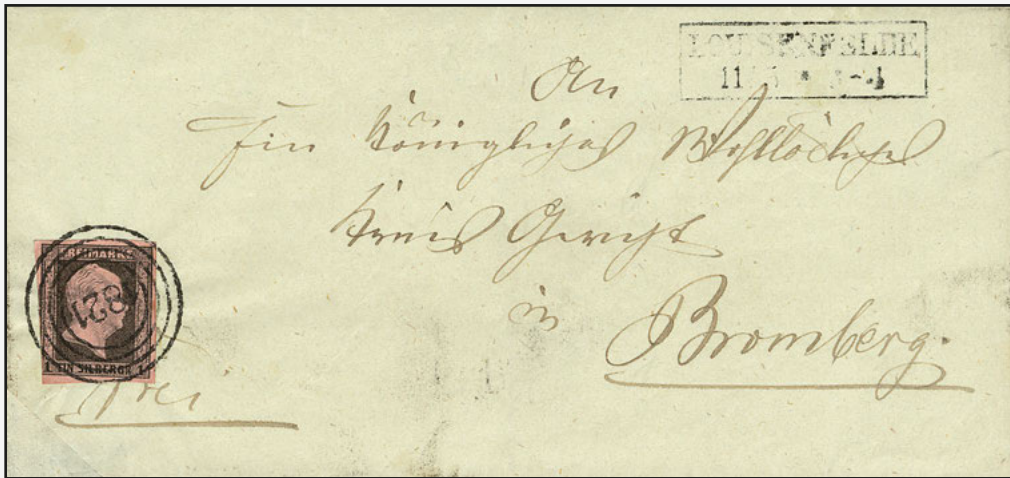 LOUISENFELDE
11 5 * 3-4
An
Ein Königliches Wohllöbliches
Kreis Gericht
in
Bromberg.
FREIMARKE
1 EIN SILBERGR. 1
frei